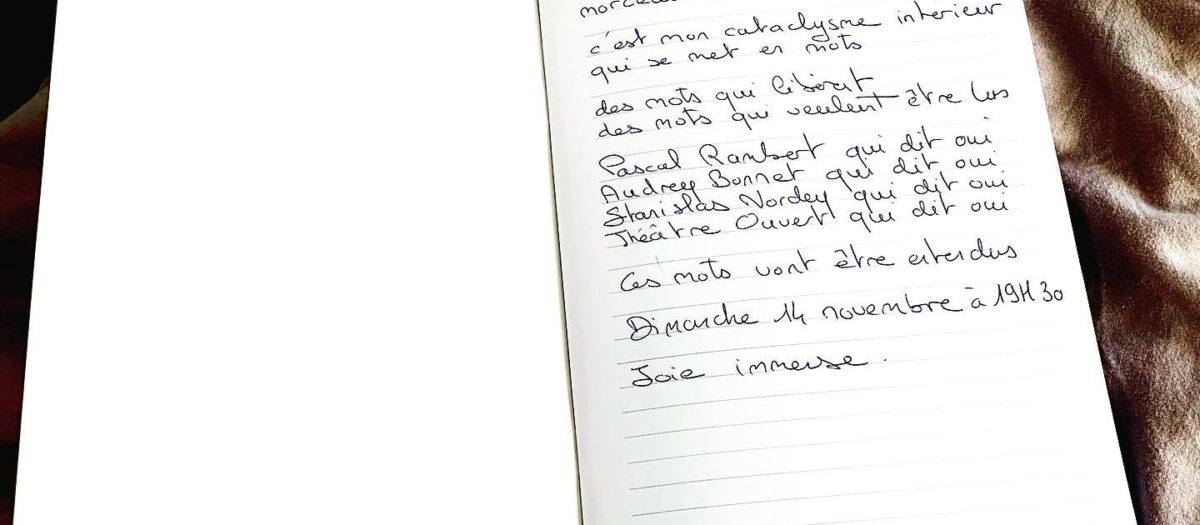 c'est mon cataclysme interieur
qui se met en mots
des mots qui libèrent,
des mots qui veulent être lus
Pascal Rambert qui dit oui
Audrey Bonnet qui dit oui
Stanislas Nordey qui dit oui
Théâtre Ouvert qui dit oui
Ces mots vont être entendus
Dimanche 14 novembre à 19H30
Joie immense.